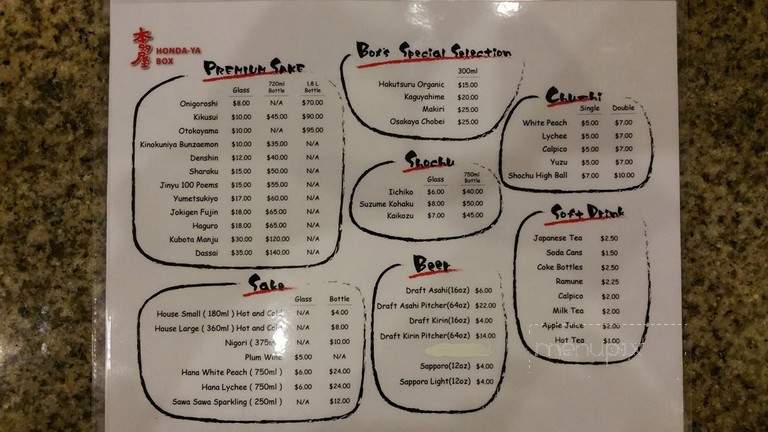 本多屋
HONDA-YA
BOX
PREMIUM SAKE
Glass 720ml Bottle 1.8 L Bottle
Onigoroshi $8.00 N/A $70.00
Kikusui $10.00 $45.00 $90.00
Otokoyama $10.00 N/A $95.00
Kinokuniya Bunzaemon $10.00 $35.00 N/A
Denshin $12.00 $40.00 N/A
Sharaku $15.00 $50.00 N/A
Jinyu 100 Poems $15.00 $55.00 N/A
Yumetsukiyo $17.00 $60.00 N/A
Jokigen Fujin $18.00 $65.00 N/A
Haguro $18.00 $65.00 N/A
Kubota Manju $30.00 $120.00 N/A
Dassai $35.00 $140.00 N/A
Box's Special Selection
300ml
Hakutsuru Organic $15.00
Kaguyahime $20.00
Makiri $25.00
Osakaya Chobei $25.00
Chu-hi
Single Double
White Peach $5.00 $7.00
Lychee $5.00 $7.00
Calpico $5.00 $7.00
Yuzu $5.00 $7.00
Shochu High Ball $7.00 $10.00
Shochu
Glass 750ml Bottle
Iichiko $6.00 $40.00
Suzume Kohaku $8.00 $50.00
Kaikozu $7.00 $45.00
Soft Drink
Japanese Tea $2.50
Soda Cans $1.50
Coke Bottles $2.50
Ramune $2.25
Calpico $2.00
Milk Tea $2.00
Apple Juice $2.00
Hot Tea $1.00
Sake
Glass Bottle
House Small ( 180ml ) Hot and Cold N/A $4.00
House Large ( 360ml ) Hot and Cold N/A $8.00
Nigori ( 375ml N/A $10.00
Plum Wine $5.00 N/A
Hana White Peach ( 750ml ) $6.00 $24.00
Hana Lychee ( 750ml ) $6.00 $24.00
Sawa Sawa Sparkling ( 250ml ) N/A $12.00
Beer
Draft Asahi(16oz) $6.00
Draft Asahi Pitcher(64oz) $22.00
Draft Kirin(16oz) $4.00
Draft Kirin Pitcher(64oz) $14.00
Sapporo(12oz) $4.00
Sapporo Light(12oz) $4.00
menupix